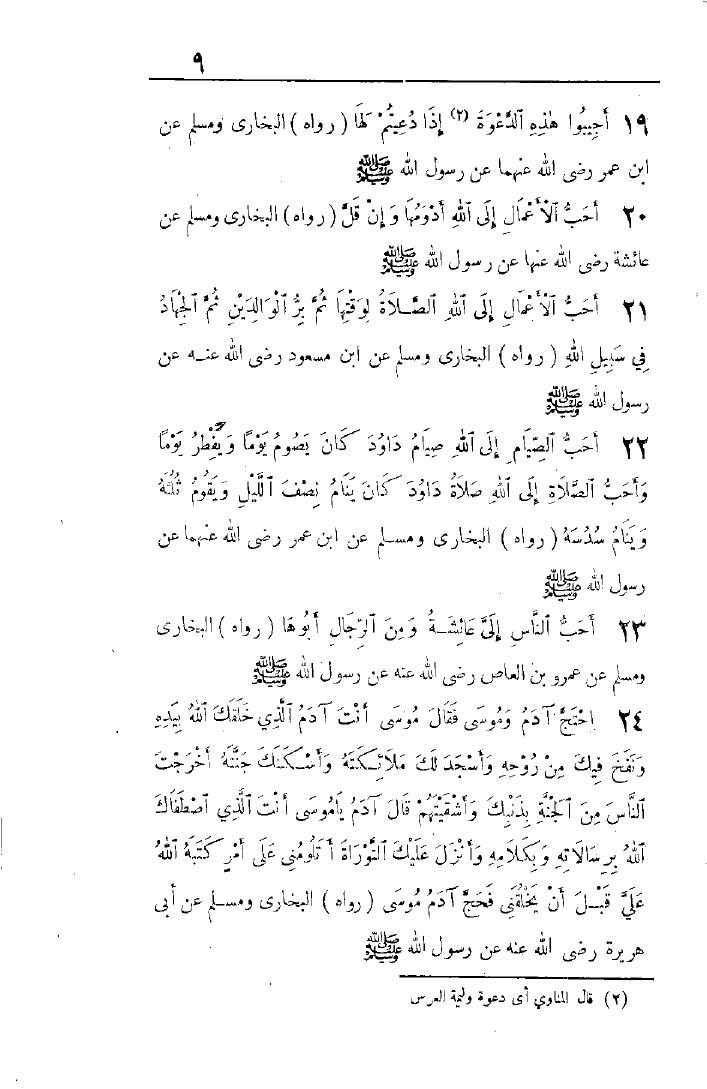 ٩
١٩ أَجِيبُوا هٰذِهِ ٱلدَّعْوَةَ (٢) إِذَا دُعِيتُمْ لَهَا ( رواه ) البخارى ومسلم عن
ابن عمر رضى الله عنهما عن رسول الله ﷺ
٢٠ أَحَبُّ ٱلْأَعْمَالِ إِلَى ٱللهِ أَدْوَمُهَا وَإِنْ قَلَّ ( رواه ) البخارى ومسلم عن
عائشة رضى الله عنها عن رسول الله ﷺ
٢١ أَحَبُّ ٱلْأَعْمَالِ إِلَى ٱللهِ ٱلصَّلَاةُ لِوَقْتِهَا ثُمَّ بِرُّ ٱلْوَالِدَيْنِ ثُمَّ ٱلْجِهَادُ
فِي سَبِيلِ ٱللهِ ( رواه ) البخارى ومسلم عن ابن مسعود رضى الله عنه عن
رسول الله ﷺ
٢٢ أَحَبُّ ٱلصِّيَامِ إِلَى ٱللهِ صِيَامُ دَاوُدَ كَانَ يَصُومُ يَوْمًا وَيُفْطِرُ يَوْمًا
وَأَحَبُّ ٱلصَّلَاةِ إِلَى ٱللهِ صَلَاةُ دَاوُدَ كَانَ يَنَامُ نِصْفَ ٱللَّيْلِ وَيَقُومُ ثُلُثَهُ
وَيَنَامُ سُدُسَهُ ( رواه ) البخارى ومسلم عن ابن عمر رضى الله عنهما عن
رسول الله ﷺ
٢٣ أَحَبُّ ٱلنَّاسِ إِلَىَّ عَائِشَةُ وَمِنَ ٱلرِّجَالِ أَبُوهَا ( رواه ) البخارى
ومسلم عن عمرو بن العاص رضى الله عنه عن رسول الله ﷺ
٢٤ اِحْتَجَّ آدَمُ وَمُوسَى فَقَالَ مُوسَى أَنْتَ آدَمُ ٱلَّذِي خَلَقَكَ ٱللهُ بِيَدِهِ
وَنَفَخَ فِيكَ مِنْ رُوْحِهِ وَأَسْجَدَ لَكَ مَلَائِكَتَهُ وَأَسْكَنَكَ جَنَّتَهُ أَخْرَجْتَ
ٱلنَّاسَ مِنَ ٱلْجَنَّةِ بِذَنْبِكَ وَأَشْقَيْتَهُمْ قَالَ آدَمُ يَامُوسَى أَنْتَ ٱلَّذِي ٱصْطَفَاكَ
ٱللهُ بِرِسَالَاتِهِ وَبِكَلَامِهِ وَأَنْزَلَ عَلَيْكَ ٱلتَّوْرَاةَ أَتَلُومُنِى عَلَى أَمْرٍ كَتَبَهُ ٱللهُ
عَلَىَّ قَبْلَ أَنْ يَخْلُقَنِى فَحَجَّ آدَمُ مُوسَى ( رواه ) البخارى ومسلم عن أبى
هريرة رضى الله عنه عن رسول الله ﷺ
(٢) قال المناوي أى دعوة وليمة العرس